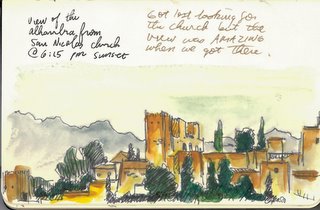 view of the
alhambra from
San Nicolas church
@ 6:15 pm sunset
Got lost looking for
the church but the
view was AMAZING
when we got there.